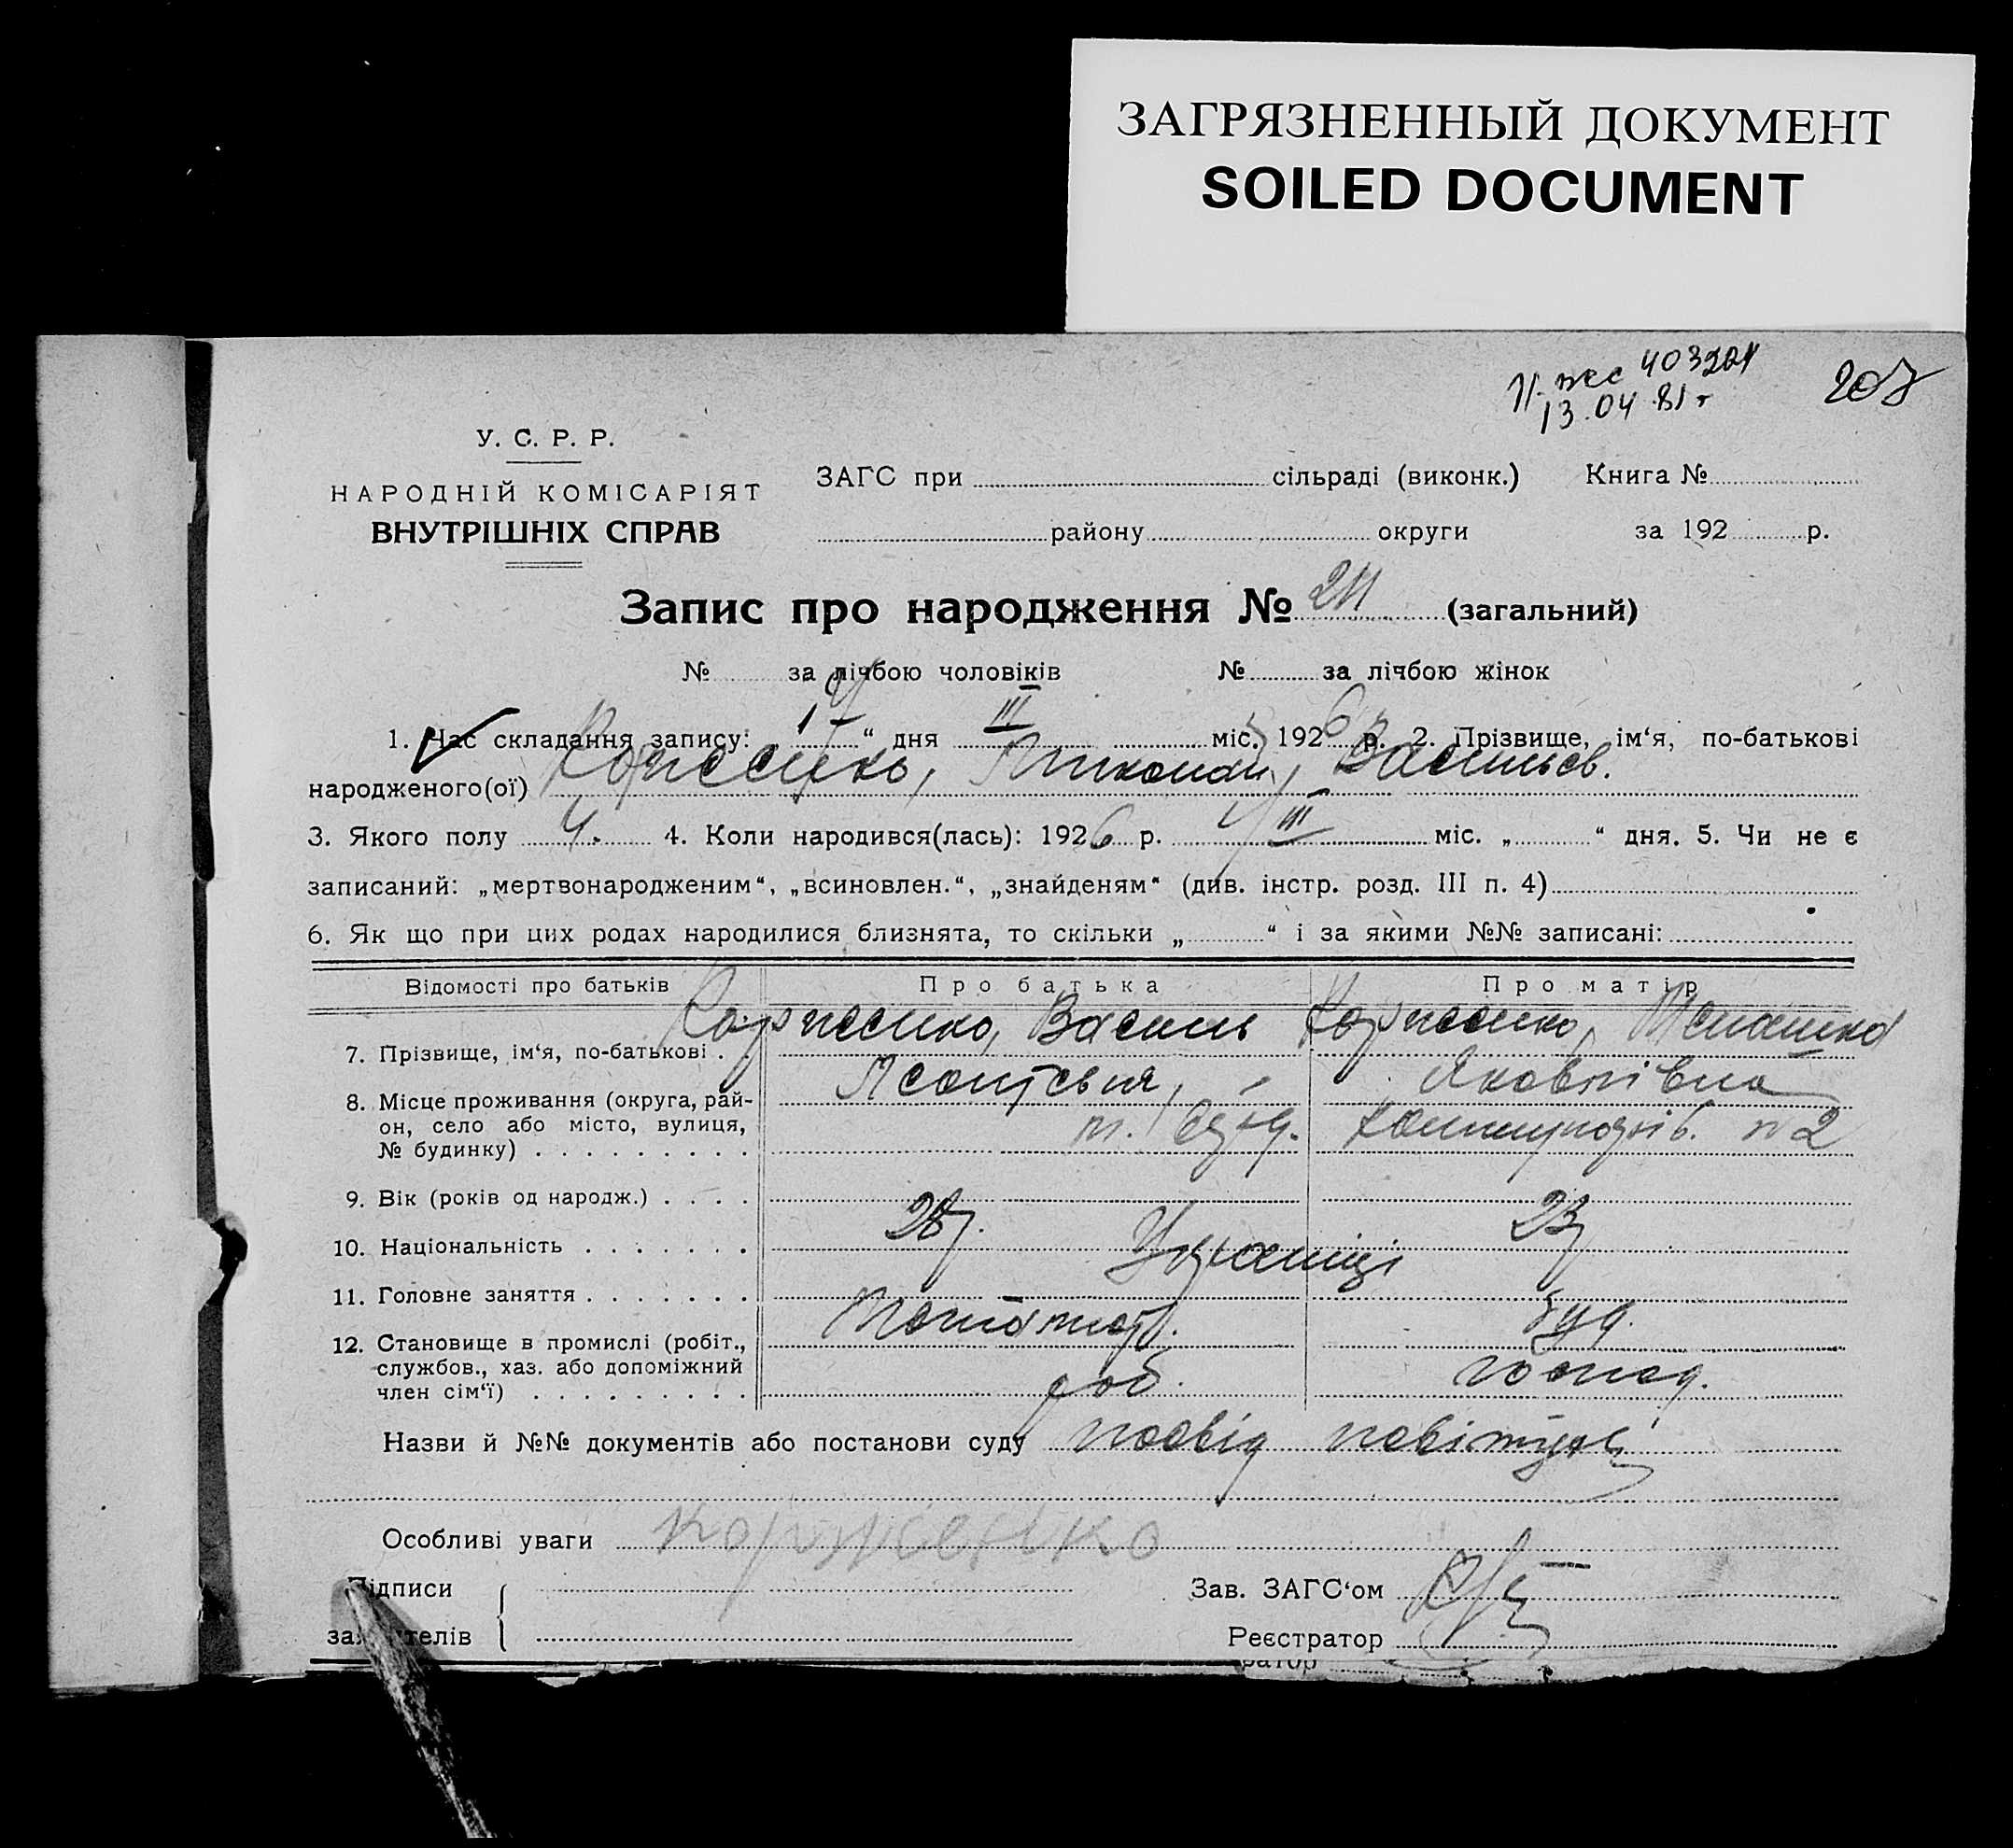 ЗАГРЯЗНЕННЫЙ ДОКУМЕНТ
SOILED DOCUMENT
13.04 81 г
207
У. С. Р. Р.
НАРОДНІЙ КОМІСАРІЯТ
ВНУТРІШНІХ СПРАВ
ЗАГС при сільраді (виконк.) Книга №
району округи за 192 р.
Запис про народження № 211 (загальний)
№ за лічбою чоловіків № за лічбою жінок
1. Час складання запису: 17 “ дня III міс. 1926 р. 2. Прізвище, ім‘я, по-батькові
народженого(ої) Васильев.
3. Якого полу Ч. 4. Коли народився(лась): 1926 р. 4/III міс. „ “ дня. 5. Чи не є
записаний: „мертвонародженим“, „всиновлен.“, „знайденям“ (див. інстр. розд. III п. 4)
6. Як що при цих родах народилися близнята, то скільки „ “ і за якими №№ записані:
Відомості про батьків Про батька Про матір
7. Прізвище, ім‘я, по-батькові . . Василь
8. Місце проживання (округа, рай-
он, село або місто, вулиця,
№ будинку) . . . . . . . . . №2
9. Вік (років од народж.) . . . . 28 23
10. Національність . . . . . . . Українці
11. Головне заняття . . . . . . .
12. Становище в промислі (робіт.,
службов., хаз. або допоміжний
член сім‘ї) . . . . . . . . . роб. господ.
Назви й №№ документів або постанови суду
Особливі уваги Корженко
Підписи Зав. ЗАГС‘ом
Реєстратор